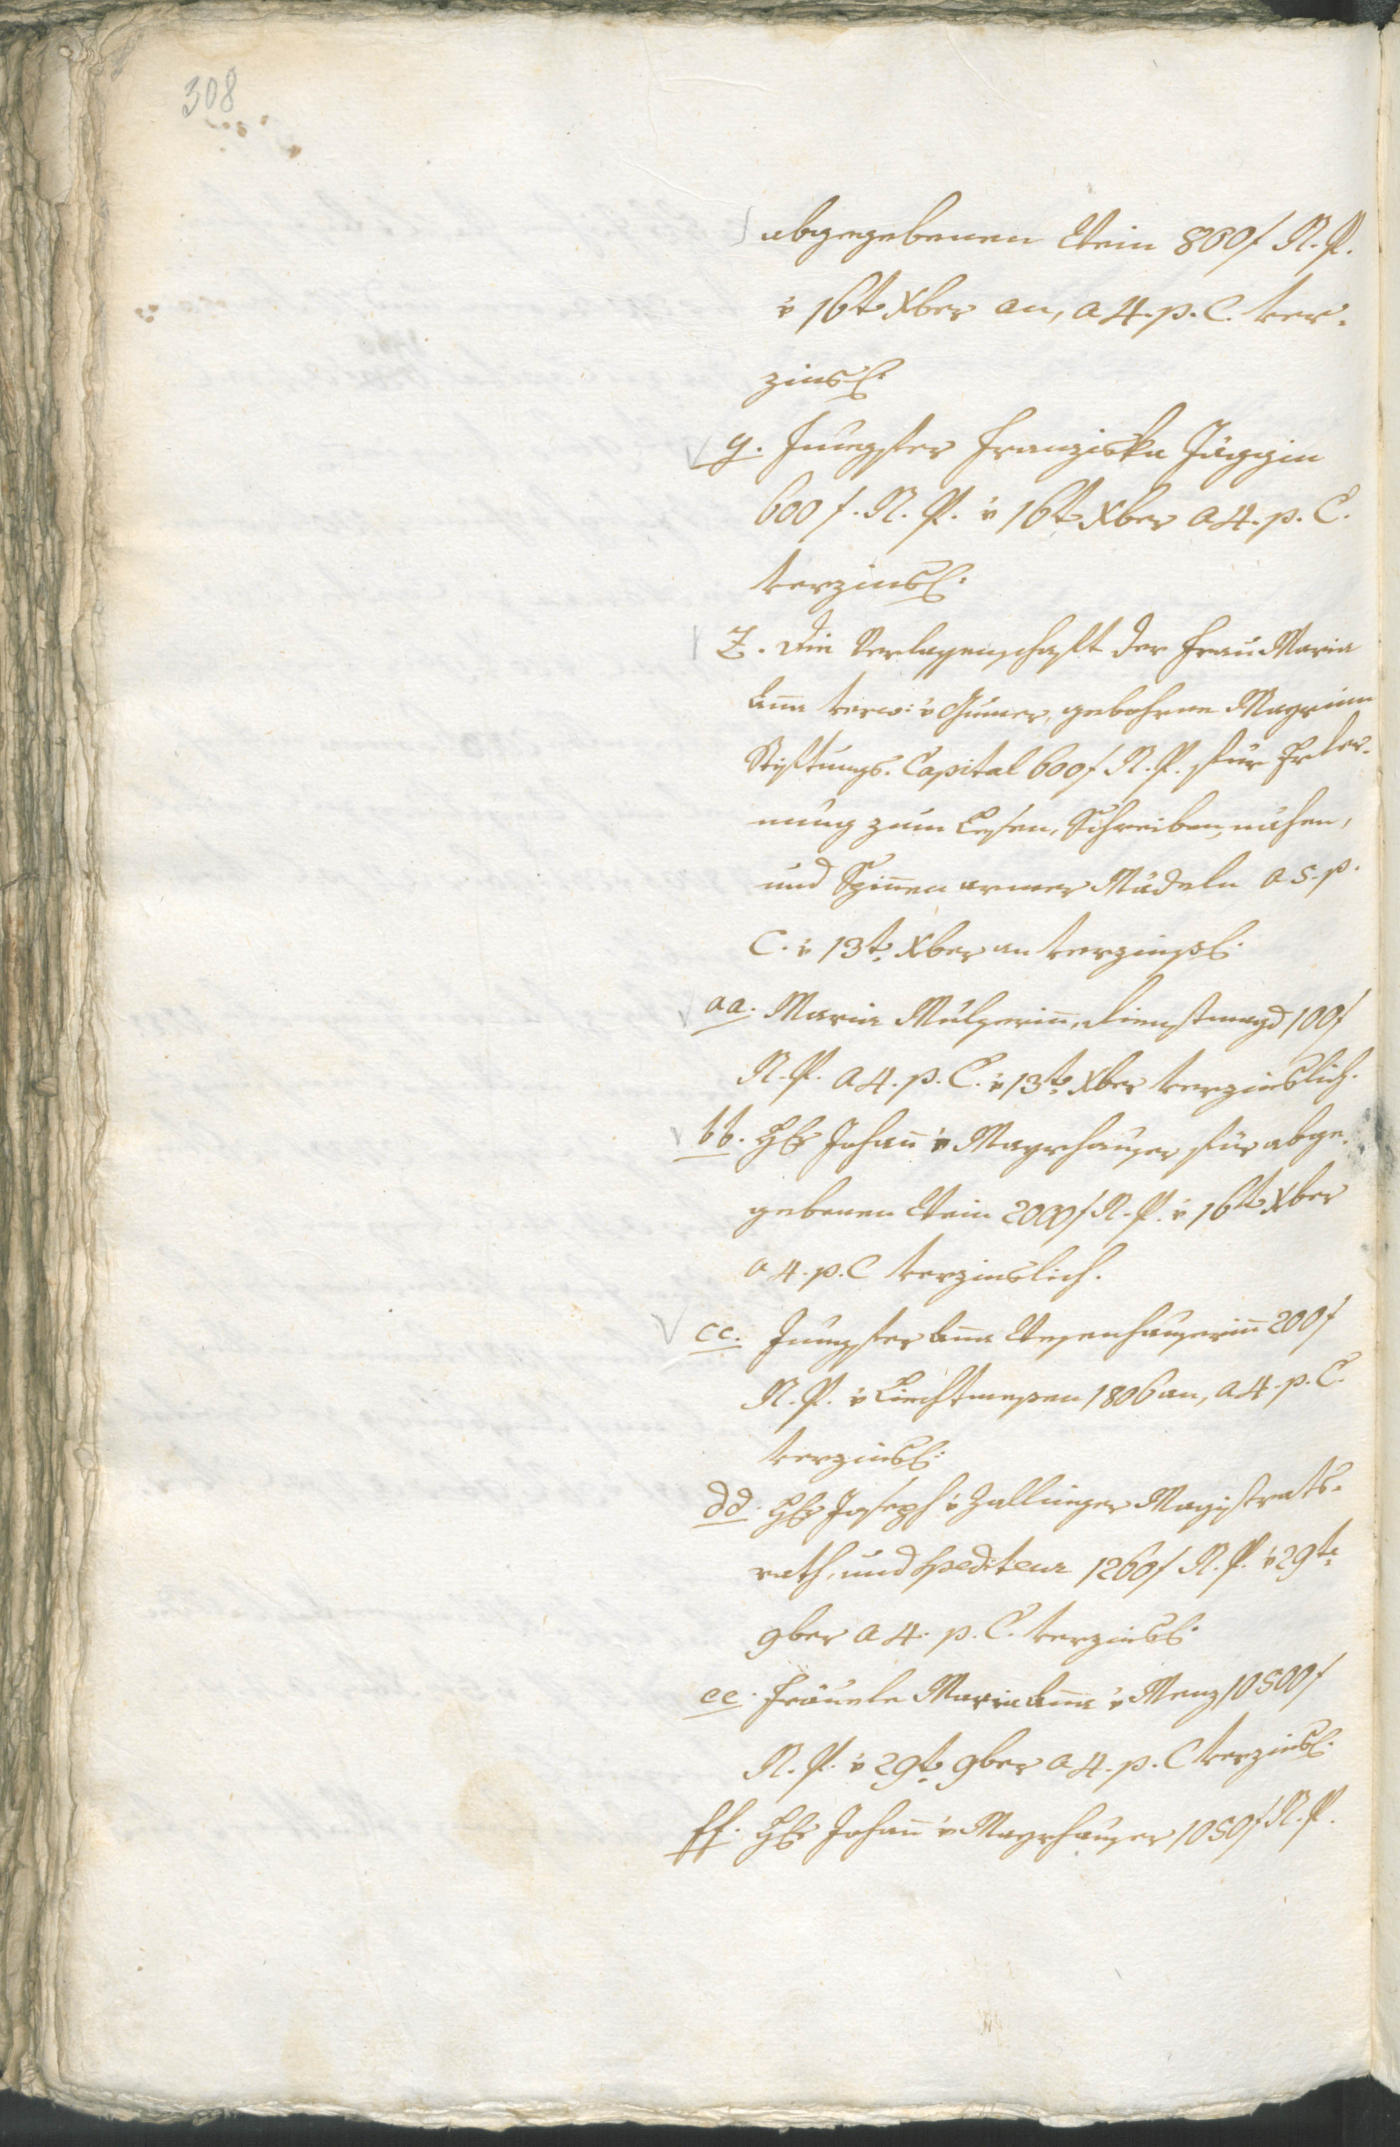 308
abgegebenen Wein 800f R. W.
v 16t Xber an, a 4. p. C. ver-
zinsl:
y. Jungfer Franziska Jäggin
600 f. R. W. v 16t Xber a 4. p. C.
verzinsl:
Z. Die Verlassenschaft der Frau Maria
Anna verw: v Gumer, gebohrne Mayrinn
Stiftungs-Capital 600f R. W. für Erler-
nung zum Lesen, Schreiben, nähen,
und Spinnen armer Mädeln a 5. p.
C. v 13t Xber an verzinsl:
aa. Maria Mulserinn, Dienstmagd 100f
R. W. a 4. p. C. v 13t Xber verzinslich.
bb. Hr Johann v Mayrhauser für abge-
gebenen Wein 2000f R. W. v 16t Xber
a 4. p. C verzinslich.
cc. Jungfer Anna Wesenhauserinn 200f
R. W. v Liechtmessen 1806 an, a 4. p. C.
verzinsl:
dd. Hr Joseph v Zallinger Magistrats-
rath, und Spediteur 1260f R. W. v 29t
9ber a 4. p. C. verzinsl:
ee. Fräuele Maria Anna v Menz 10500f
R. W. v 29t 9ber a 4. p. C verzinsl:
ff. Hr Johann v Mayrhauser 1050f R. W.